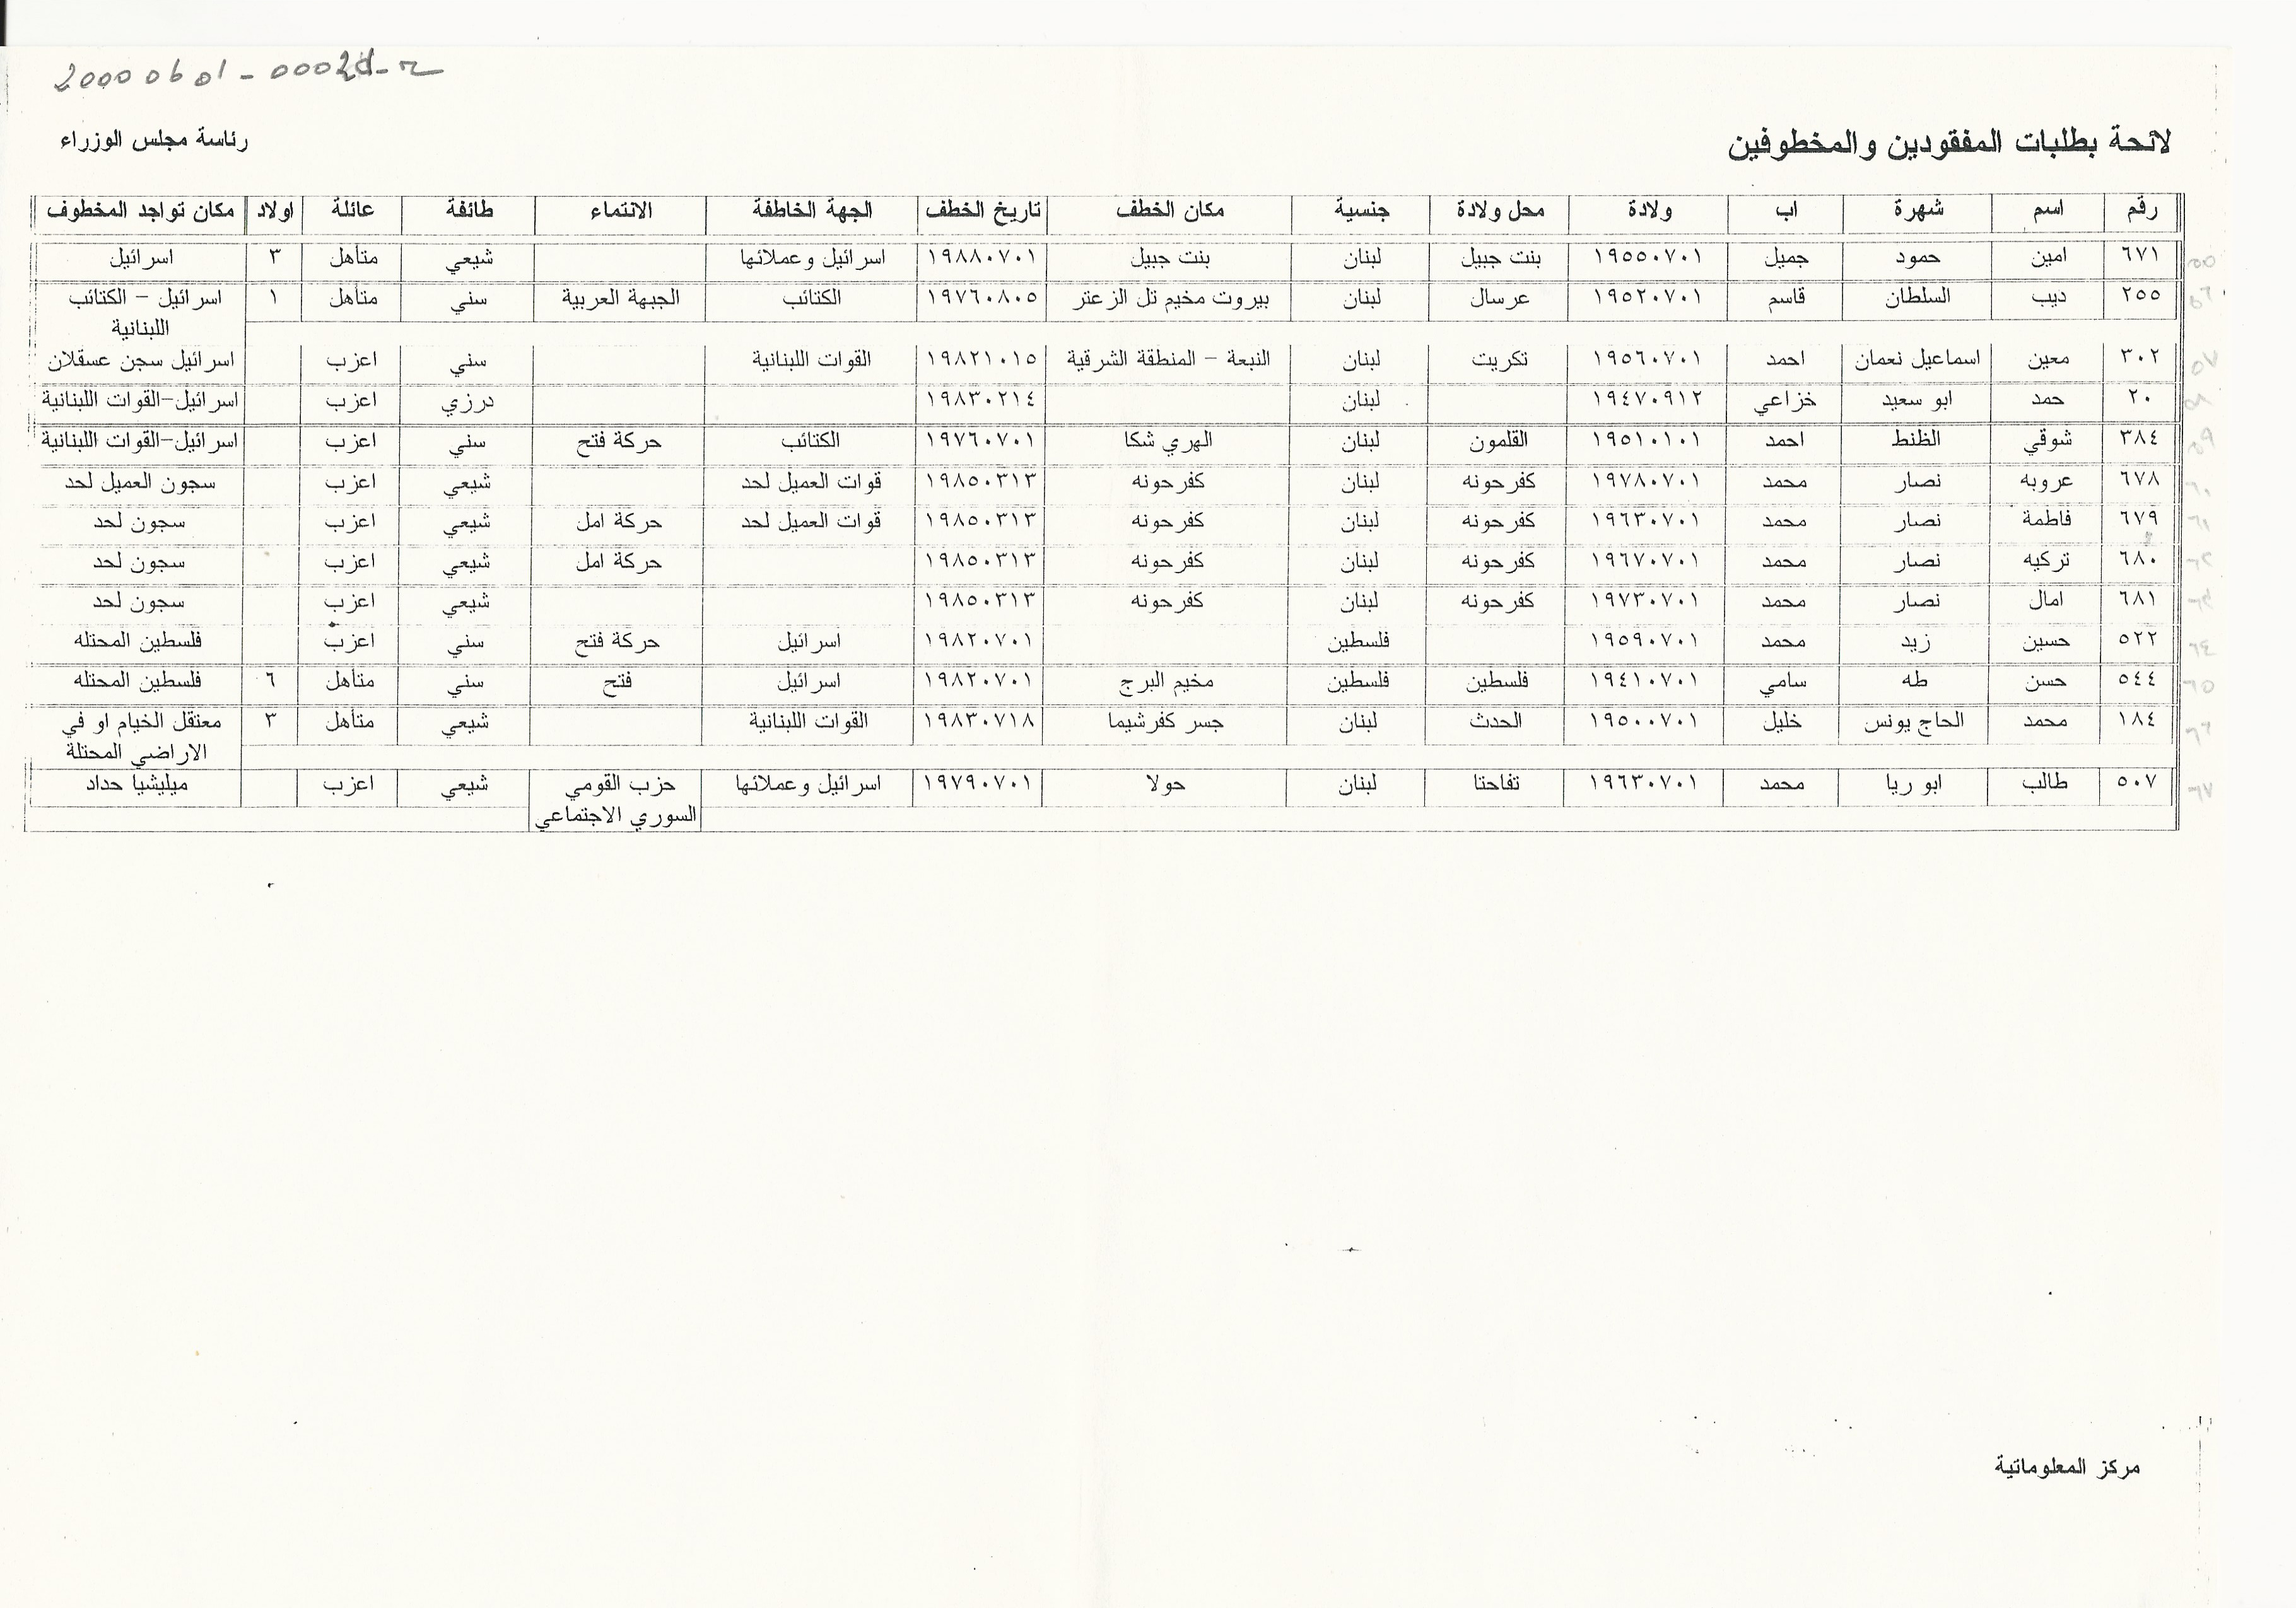 20000601-0002
رئاسة مجلس الوزراء
لائحة بطلبات المفقودين والمخطوفين
رقم اسم شهرة اب ولادة محل ولادة جنسية مكان الخطف تاريخ الخطف الجهة الخاطفة الانتماء طائفة عائلة اولاد مكان تواجد المخطوف
٦٧١ امين حمود جميل ١٩٥٥٠٧٠١ بنت جبيل لبنان بنت جبيل ١٩٨٨٠٧٠١ اسرائيل وعملائها شيعي متأهل ٣ اسرائيل
٢٥٥ ديب السلطان قاسم ١٩٥٢٠٧٠١ عرسال لبنان بيروت مخيم تل الزعتر ١٩٧٦٠٨٠٥ الكتائب الجبهة العربية سني متأهل ١ اسرائيل – الكتائب
اللبنانية
٣٠٢ معين اسماعيل نعمان احمد ١٩٥٦٠٧٠١ تكريت لبنان النبعة – المنطقة الشرقية ١٩٨٢١٠١٥ القوات اللبنانية سني اعزب اسرائيل سجن عسقلان
٢٠ حمد ابو سعيد خزاعي ١٩٤٧٠٩١٢ لبنان ١٩٨٣٠٢١٤ درزي اعزب اسرائيل-القوات اللبنانية
٣٨٤ شوقي الظنط احمد ١٩٥١٠١٠١ القلمون لبنان الهري شكا ١٩٧٦٠٧٠١ الكتائب حركة فتح سني اعزب اسرائيل-القوات اللبنانية
٦٧٨ عروبه نصار محمد ١٩٧٨٠٧٠١ كفرحونه لبنان كفرحونه ١٩٨٥٠٣١٣ قوات العميل لحد شيعي اعزب سجون العميل لحد
٦٧٩ فاطمة نصار محمد ١٩٦٣٠٧٠١ كفرحونه لبنان كفرحونه ١٩٨٥٠٣١٣ قوات العميل لحد حركة امل شيعي اعزب سجون لحد
٦٨٠ تركيه نصار محمد ١٩٦٧٠٧٠١ كفرحونه لبنان كفرحونه ١٩٨٥٠٣١٣ حركة امل شيعي اعزب سجون لحد
٦٨١ امال نصار محمد ١٩٧٣٠٧٠١ كفرحونه لبنان كفرحونه ١٩٨٥٠٣١٣ شيعي اعزب سجون لحد
٥٢٢ حسين زيد محمد ١٩٥٩٠٧٠١ فلسطين ١٩٨٢٠٧٠١ اسرائيل حركة فتح سني اعزب فلسطين المحتله
٥٤٤ حسن طه سامي ١٩٤١٠٧٠١ فلسطين فلسطين مخيم البرج ١٩٨٢٠٧٠١ اسرائيل فتح سني متأهل ٦ فلسطين المحتله
١٨٤ محمد الحاج يونس خليل ١٩٥٠٠٧٠١ الحدث لبنان جسر كفرشيما ١٩٨٣٠٧١٨ القوات اللبنانية شيعي متأهل ٣ معتقل الخيام او في
الاراضي المحتلة
٥٠٧ طالب ابو ريا محمد ١٩٦٣٠٧٠١ تفاحتا لبنان حولا ١٩٧٩٠٧٠١ اسرائيل وعملائها حزب القومي شيعي اعزب ميليشيا حداد
السوري الاجتماعي
مركز المعلوماتية